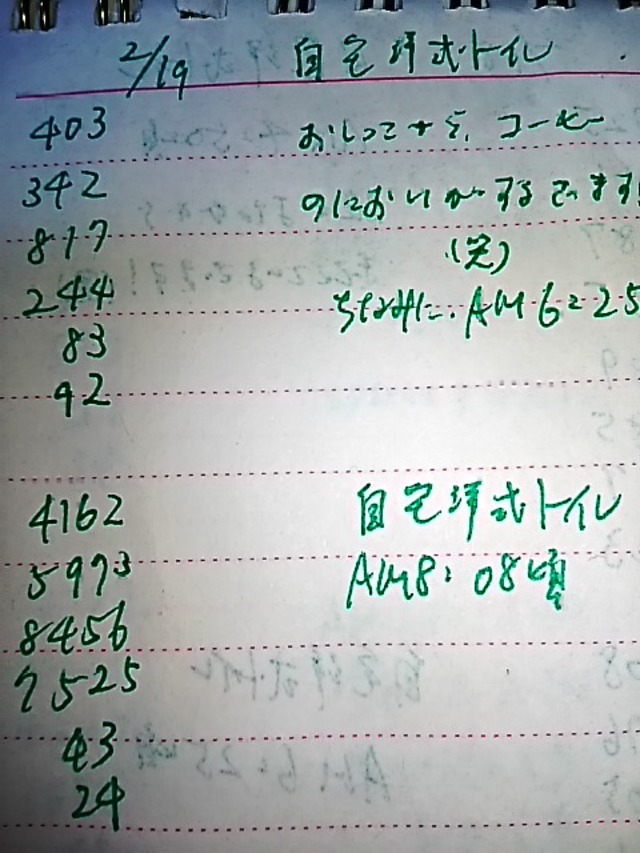 2/19 自宅洋式トイレ
403 おしっこする, コーヒー
342 のにおいがするときます
817 (笑)
244 ちなみに.. AM 6:25
83
42
4162 自宅洋式トイレ
5973 AM8:08頃
8456
7525
43
24